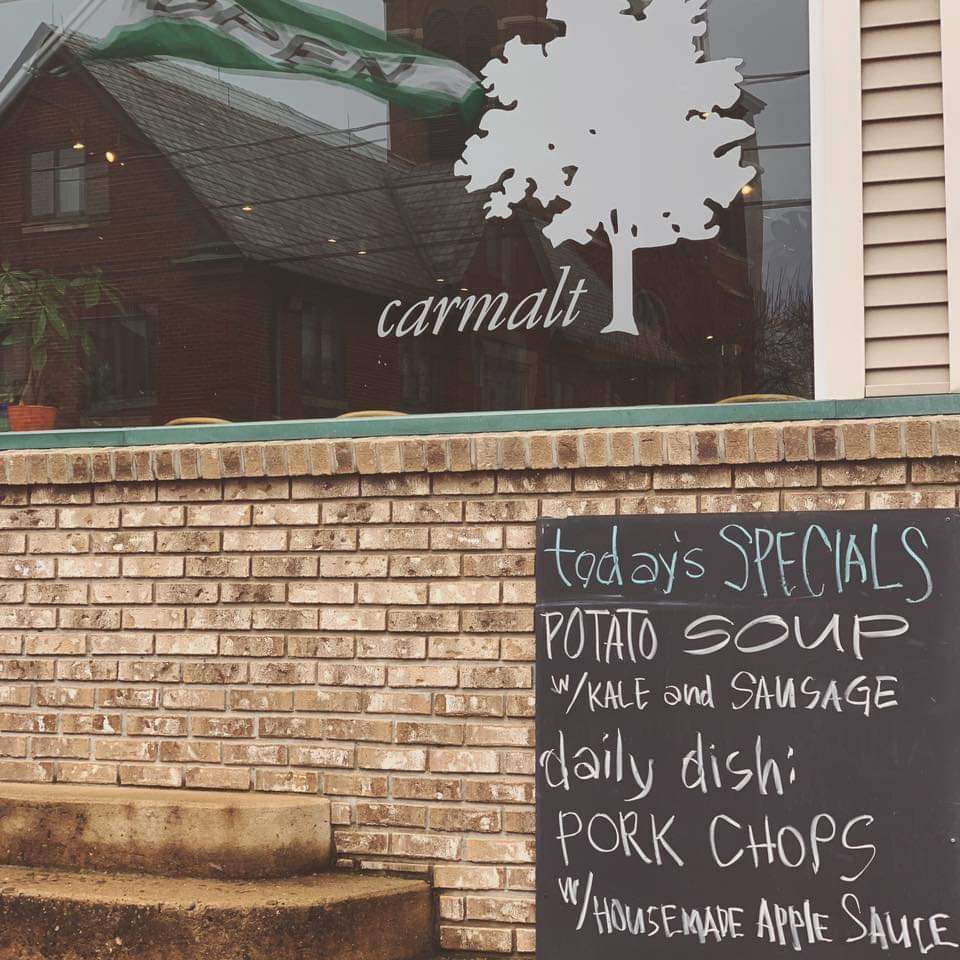 OPEN
carmalt
today's SPECIALS
POTATO SOUP
w/KALE and SAUSAGE
daily dish:
PORK CHOPS
w/HOUSEMADE APPle SAUCE